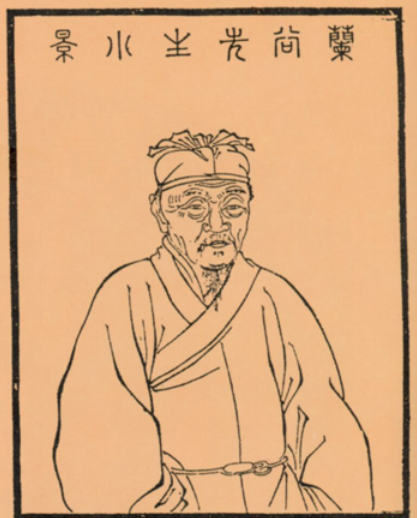 蘭谷先生小景